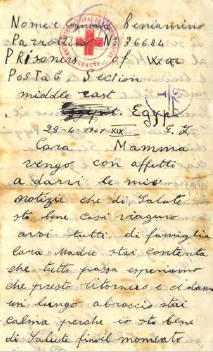 Nome e Beniamino
Parrotta N° 36684
Prisoners of war
Postal Section
middle east
Egypt
Cara Mamma
vengo con affetto
a darvi le mie
notizie che di salute
sto bene cosi viaguro
a voi tutti di famiglia
Cara Madre stai contenta
che tutto passa speriamo
che presto ritornero e ci daremo
un lungo abraccio stai
calma perche io sto bene
di salute finol momento